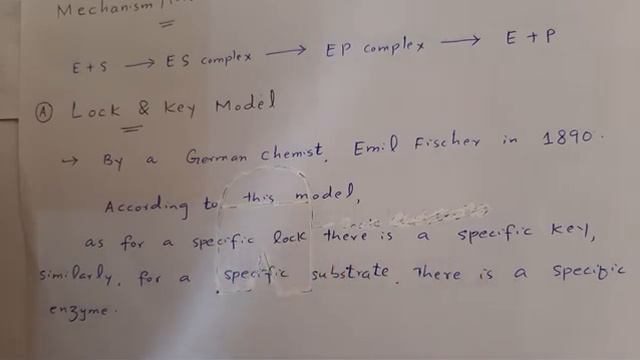 Mechanism
E+S → ES complex → EP complex → E + P
Ⓐ Lock & Key Model
→ By a German chemist, Emil Fischer in 1890.
According to this model,
as for a specific lock there is a specific key,
similarly, for a specific substrate. There is a specific
enzyme.